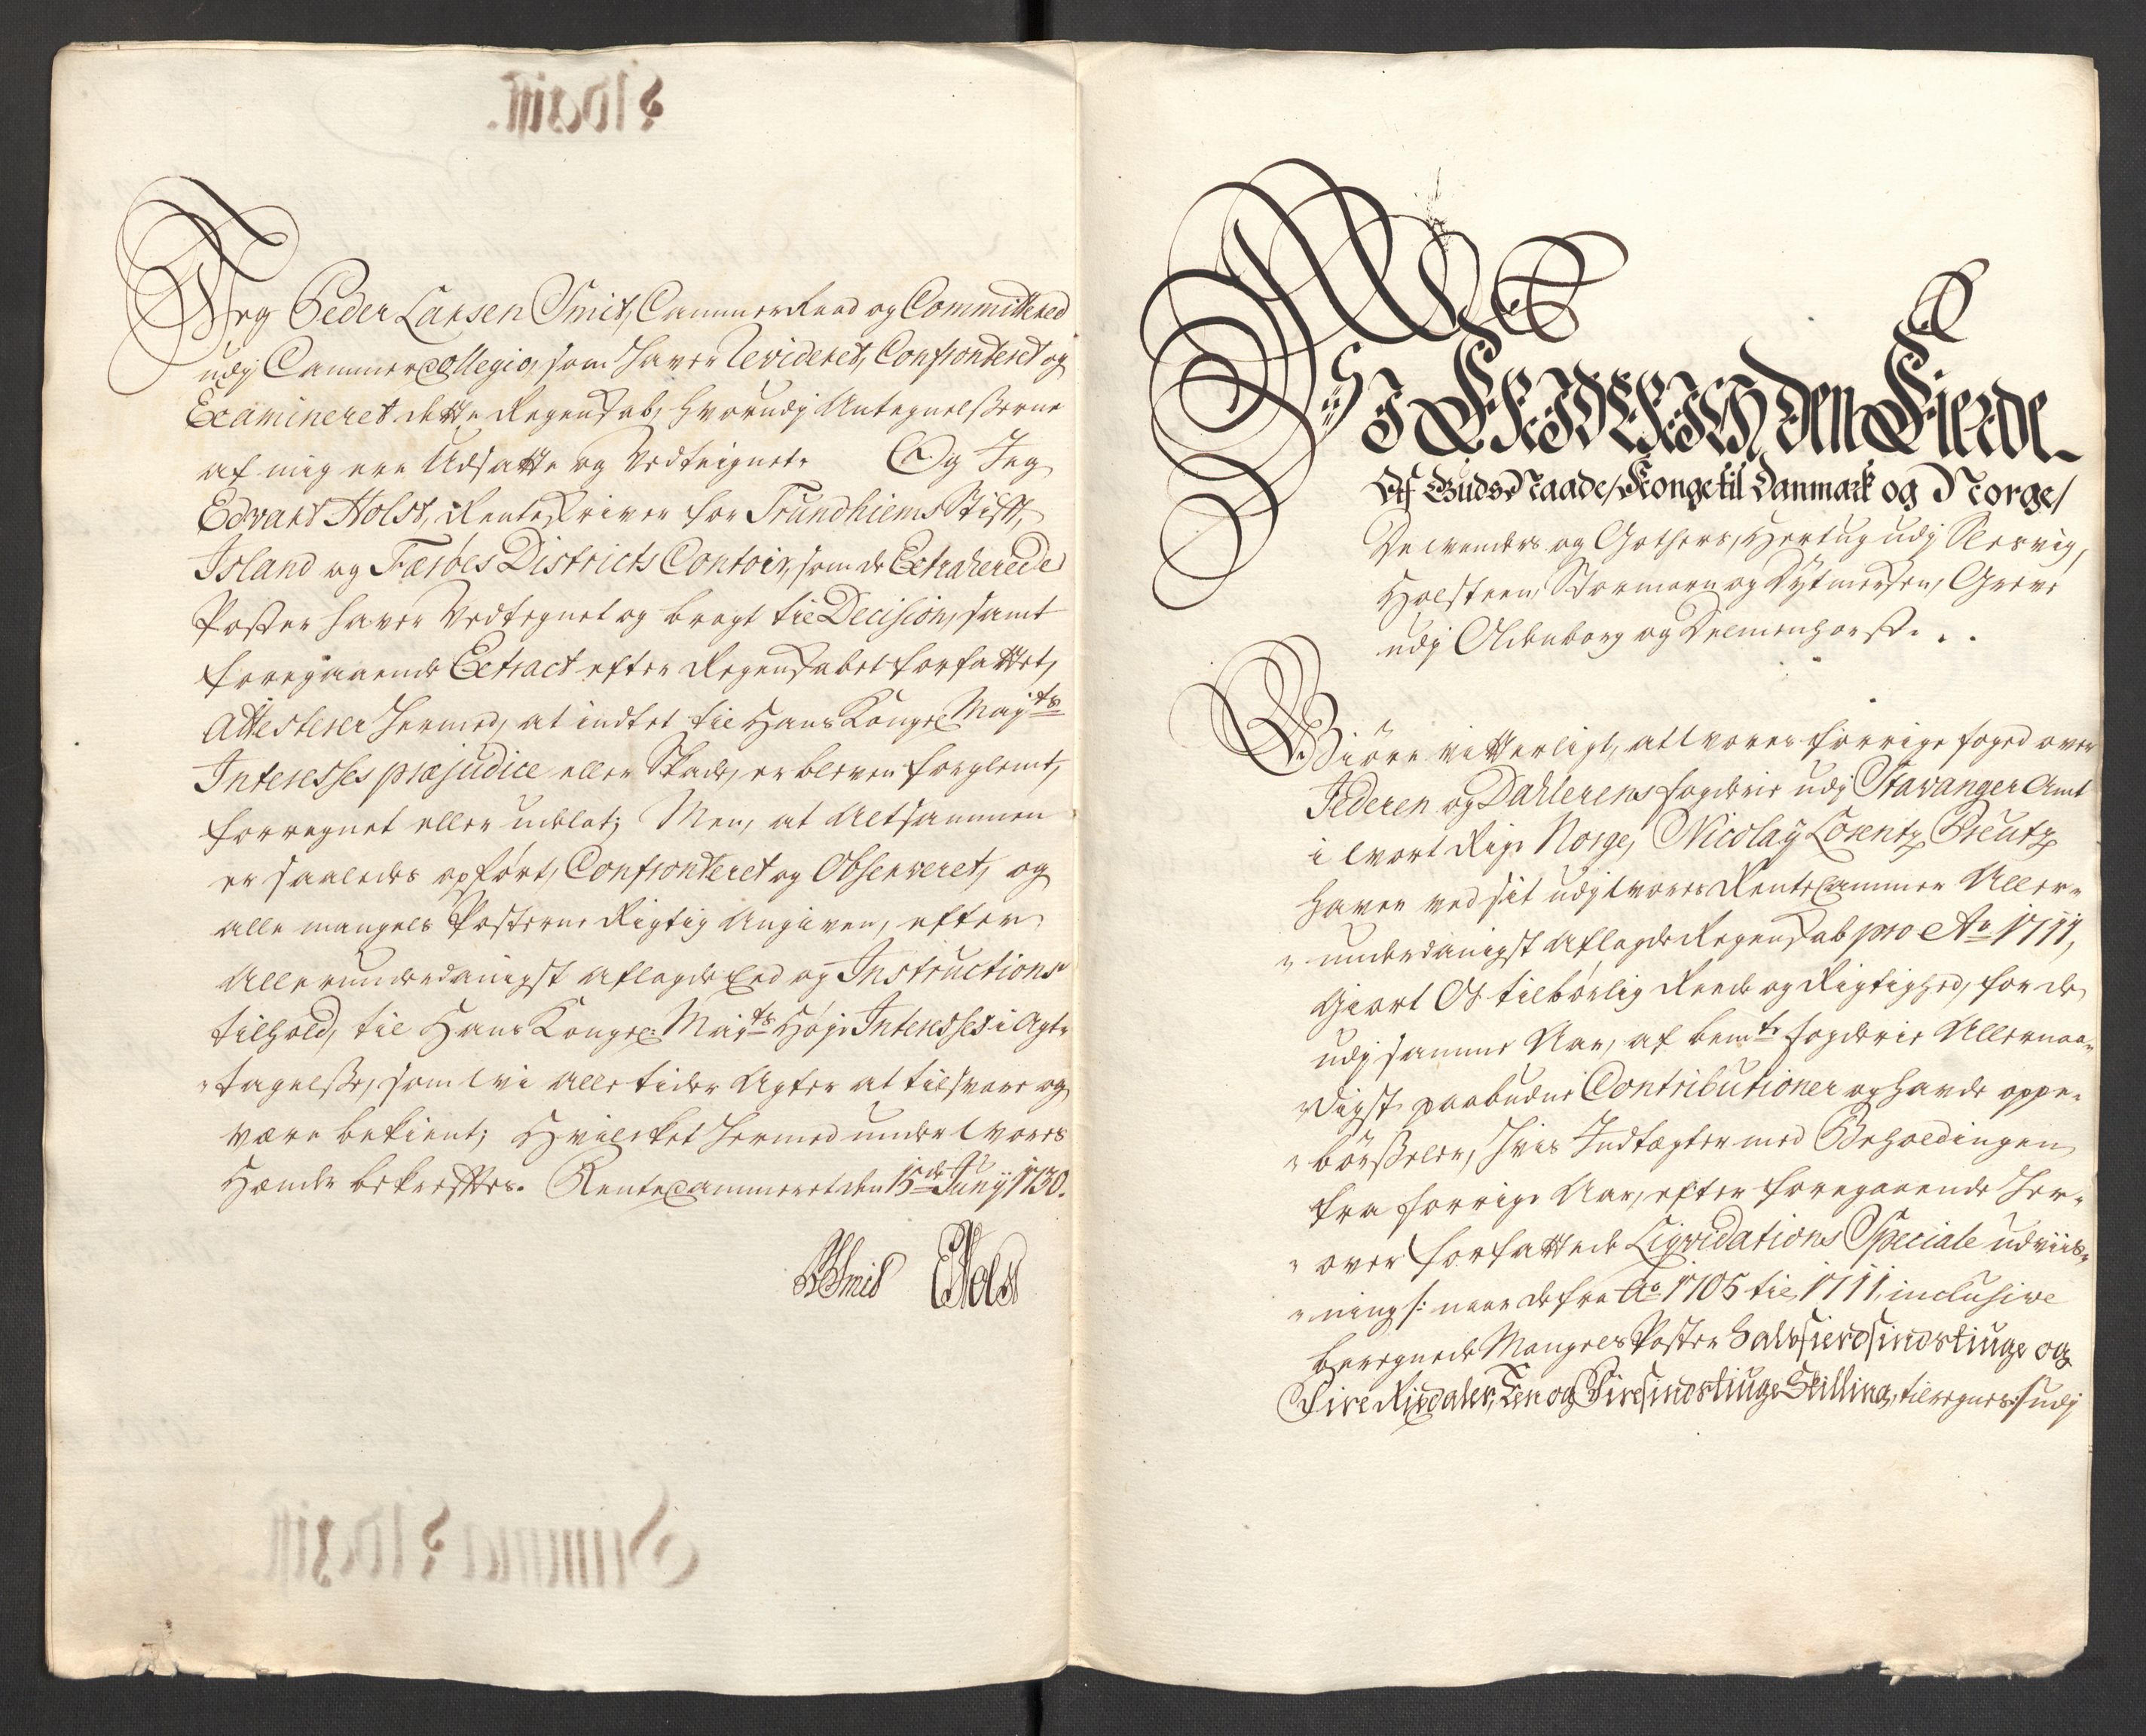 Jeg Peder Larsen Smit, CammerRaad og Committered
udj CammerCollegio, som haver Revideret, Confronteret og
Examineret dette Regenskab, hvorudj Antegnelsserne
af mig ere Udsatte og Vedteignet. Og Jeg
Edvart Holst, Renteskriver for Trundhiems Stift,
Island og Færöes Districts Contoir, som de Extraherede
Poster haver Vedtegnet og bragt til Decision, samt
foregaaende Extract efter Regenskabet forfattet,
Attesterer hermed, at indtet til Hans Kongel Mayts
Interesses præjudice eller Skade, er bleven forglemt,
forregnet eller udelat; Men, at Altsammen
er saaledes opført, Confronteret og Observeret, og
alle mangels Posterne Rigtig Angiven, efter
Allerunderdanigst aflagde Eed og Instructions
tilhold, til Hans Kongel: Mayts Høje Interesses i Agt-
-tagelsse, som Wi alle tider Agter at tilsvare og
være bekient; Hvilcket hermed under Wores
Hænder bekreftes. RenteCammeret den 15de Junij 1730.
PLSmit EHolst
WI FRIDERICH den Fierde
Af Guds Naade, Konge til Danmark og Norge,
De Wenders og Gothers, Hertug udj Slesvig,
Holsteen, Stormarn og Dytmersken, Greve
udj Oldenborg og Delmenhorst. . .
Giöre vitterligt, at Vores forrige foged over
Jederen og Dahlerens fogderie udj Stavanger Amt
i Wort Rige Norge, Nicolaÿ Lorentz Preutz
haver ved sit udj Wores RenteCammer Aller-
-underdanigst Aflagde Regenskab pro Ao 1711,
giort Os tilbörlig Reede og Rigtighed, for de
udj samme Aar, af bemte fogderie Allernaa-
-digst paabudne Contributioner og havde oppe-
-börsseler, hvis Indtægter med Beholdingen
fra forrige Aar, efter foregaaende her-
-over forfattede Liqvidations Speciale udviis-
-ning /: naar de fra Ao 1705 til 1711 inclusive
beregnede Mangels Poster Halvfierdsindstiuge og
Fire Rixdaler, Een og Firesindstiuge Skilling, tilregnes :/ udj